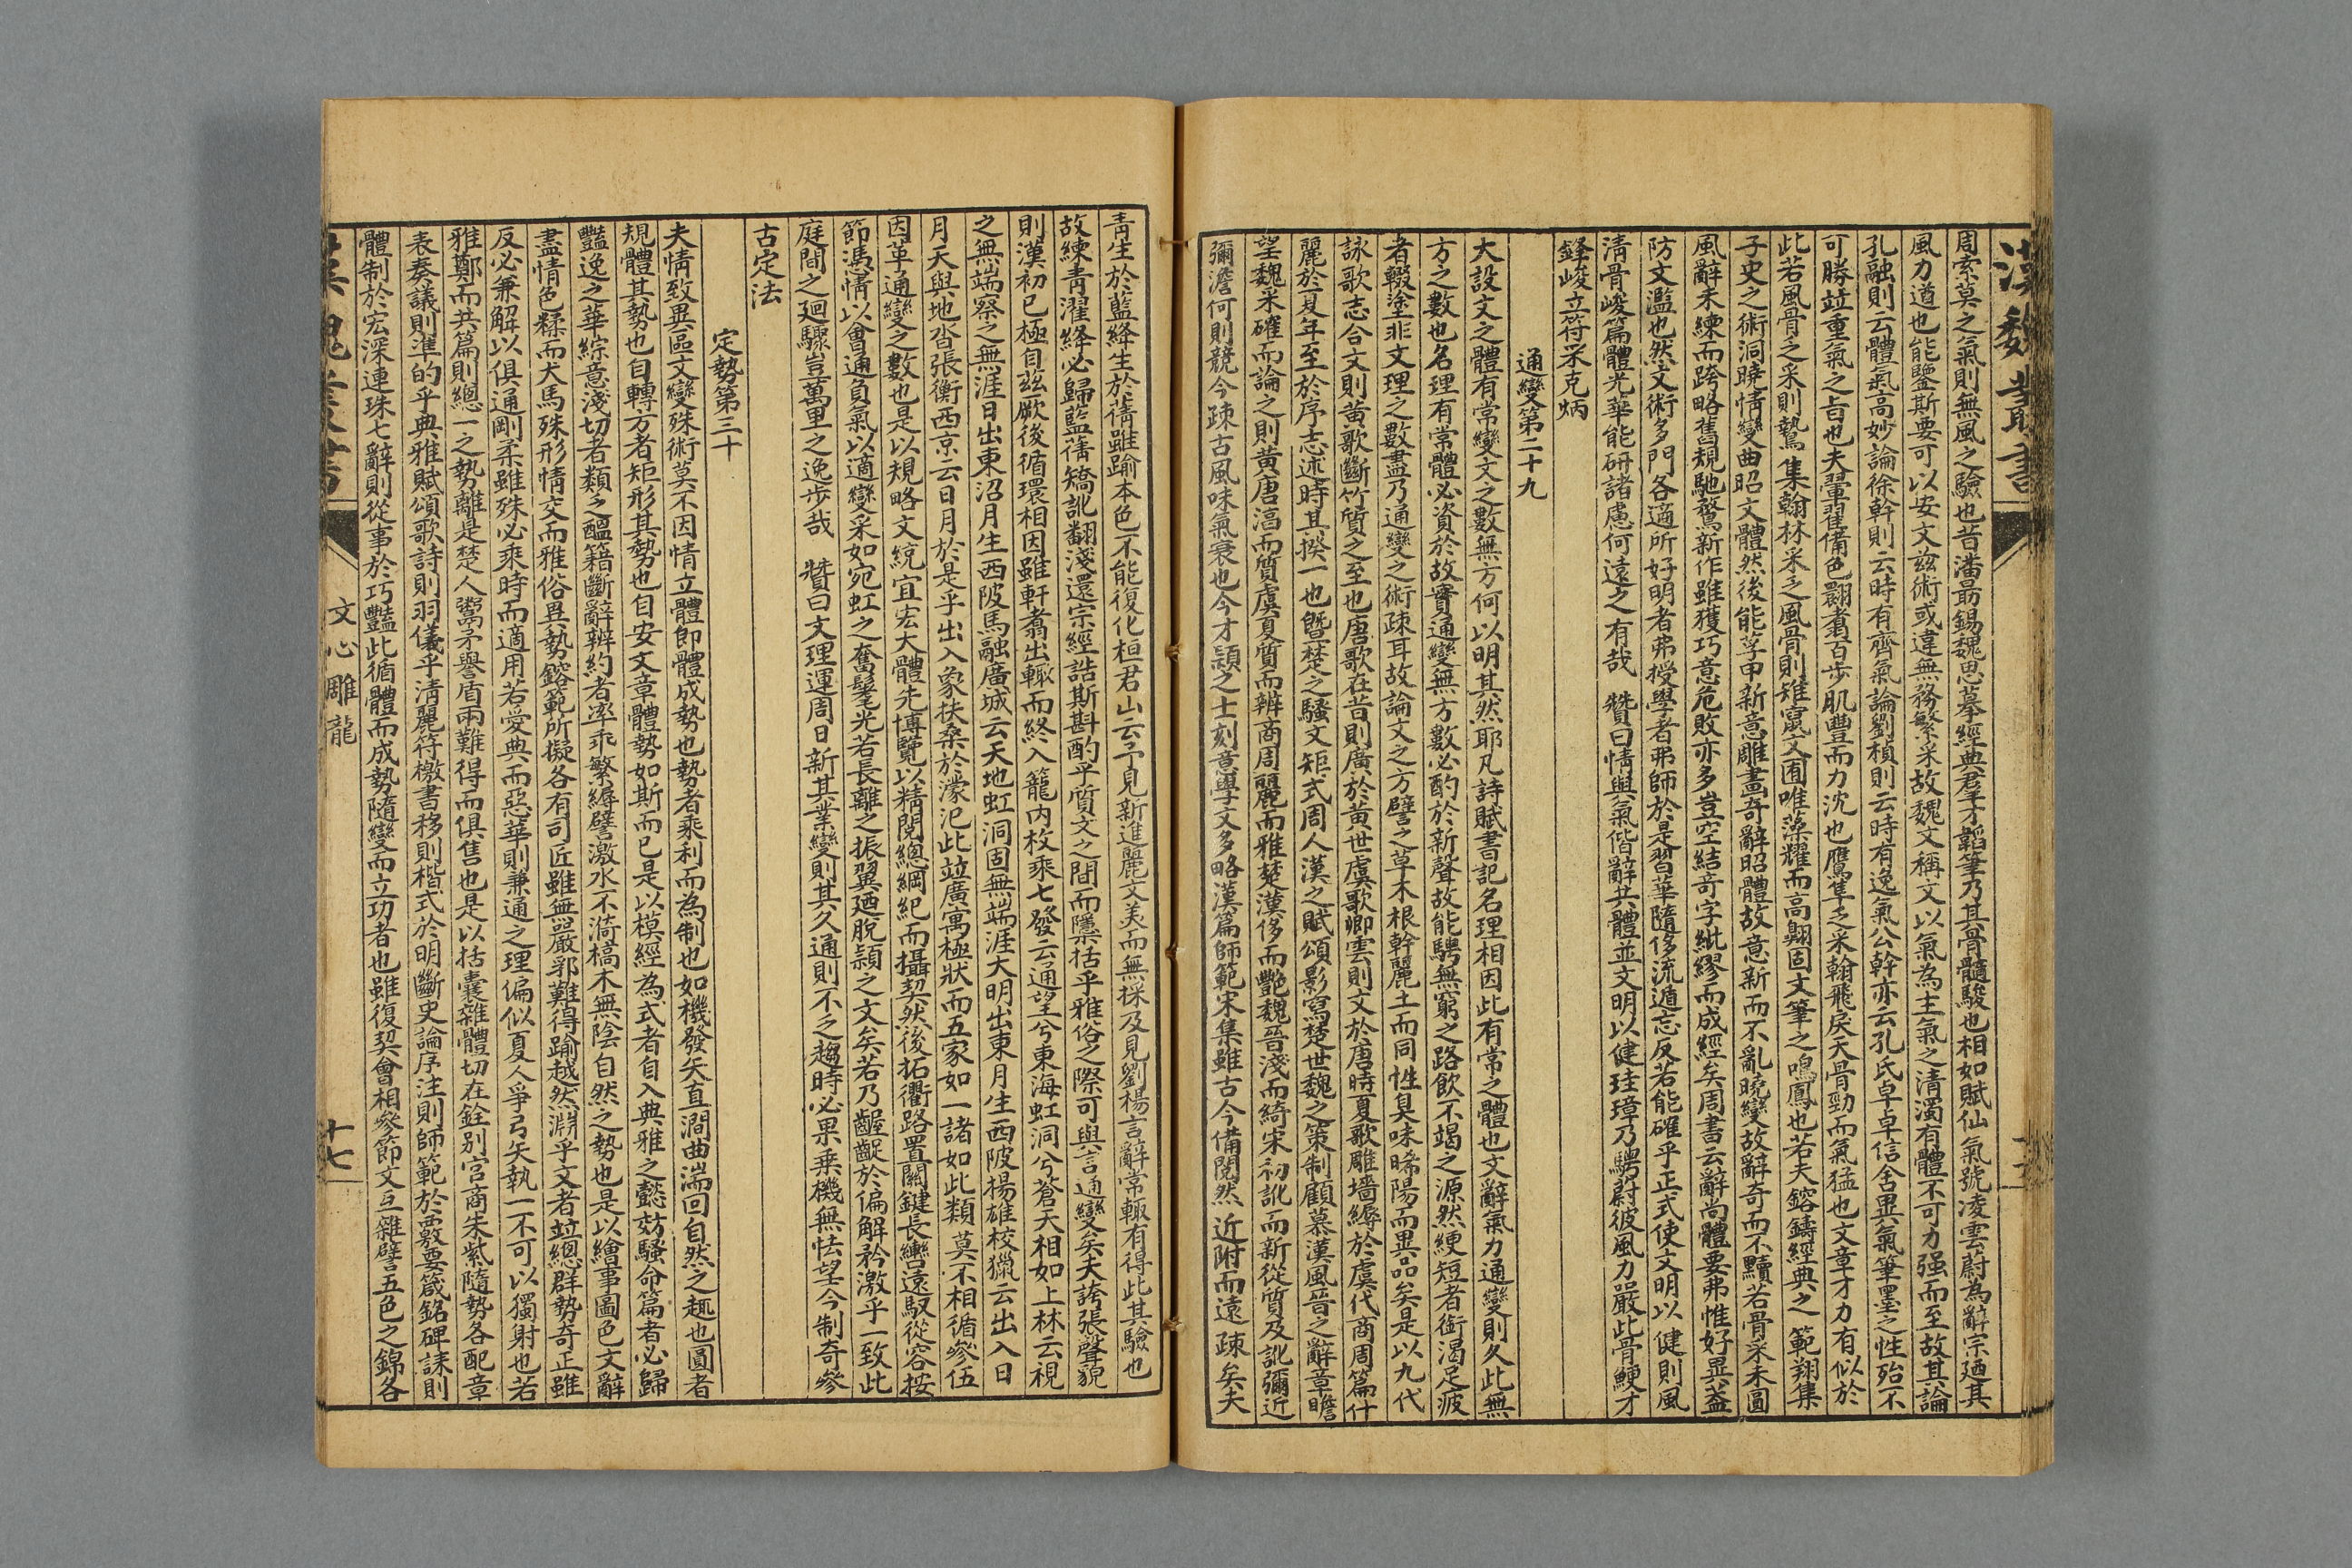 漢魏叢書
周索莫之氣則無風之驗也昔潘勗錫魏思摹經典羣才韜筆乃其骨髓駿也相如賦仙氣號凌雲蔚為辭宗廼其
風力遒也能鑒斯要可以安文兹術或違無務繁采故魏文稱文以氣為主氣之清濁有體不可力强而至故其論
孔融則云體氣高妙論徐幹則云時有齊氣論劉楨則云時有逸氣公幹亦云孔氏卓卓信含異氣筆墨之性殆不
可勝竝重氣之旨也夫翬翟備色翾翥百步肌豐而力沈也鷹隼乏采翰飛戾天骨勁而氣猛也文章才力有似於
此若風骨乏采則鷙集翰林采乏風骨則雉竄文囿唯藻耀而高翔固文筆之鳴鳳也若夫鎔鑄經典之範翔集
子史之術洞曉情變曲昭文體然後能孚甲新意雕畫奇辭昭體故意新而不亂曉變故辭奇而不黷若骨采未圓
風辭未練而跨略舊規馳騖新作雖獲巧意危敗亦多豈空結奇字紕繆而成經矣周書云辭尚體要弗惟好異蓋
防文濫也然文術多門各適所好明者弗授學者弗師於是習華隨侈流遁忘反若能確乎正式使文明以健則風
清骨峻篇體光華能研諸慮何遠之有哉　贊曰情與氣偕辭共體並文明以健珪璋乃騁蔚彼風力嚴此骨鯁才
鋒峻立符采克炳
通變第二十九
大設文之體有常變文之數無方何以明其然耶凡詩賦書記名理相因此有常之體也文辭氣力通變則久此無
方之數也名理有常體必資於故實通變無方數必酌於新聲故能騁無窮之路飲不竭之源然綆短者銜渴足疲
者輟塗非文理之數盡乃通變之術疎耳故論文之方譬之草木根幹麗土而同性臭味晞陽而異品矣是以九代
詠歌志合文則黄歌斷竹質之至也唐歌在昔則廣於黄世虞歌卿雲則文於唐時夏歌雕墻縟於虞代商周篇什
麗於夏年至於序志述時其揆一也暨楚之騷文矩式周人漢之賦頌影寫楚世魏之策制顧慕漢風晉之辭章瞻
望魏采確而論之則黄唐淳而質虞夏質而辨商周麗而雅楚漢侈而艷魏晉淺而綺宋初訛而新從質及訛彌近
彌澹何則競今疎古風味氣衰也今才頴之士刻意學文多略漢篇師範宋集雖古今備閱然近附而遠疎矣夫
青生於藍絳生於蒨雖踰本色不能復化桓君山云予見新進麗文美而無採及見劉楊言辭常輒有得此其驗也
故練青濯絳必歸藍蒨矯訛翻淺還宗經誥斯斟酌乎質文之間而隱括乎雅俗之際可與言通變矣夫誇張聲貌
則漢初已極自兹厥後循環相因雖軒翥出轍而終入籠内枚乘七發云通望兮東海虹洞兮蒼天相如上林云視
之無端察之無涯日出東沼月生西陂馬融廣城云天地虹洞固無端涯大明出東月生西陂揚雄校獵云出入日
月天與地沓張衡西京云日月於是乎出入象扶桑於濛汜此竝廣寓極狀而五家如一諸如此類莫不相循參伍
因革通變之數也是以規略文統宜宏大體先博覽以精閱總綱紀而攝契然後拓衢路置關鍵長轡遠馭從容按
節馮情以會通負氣以適變采如宛虹之奮鬐光若長離之振翼廼脫頴之文矣若乃齷齪於偏解矜激乎一致此
庭間之廻驟豈萬里之逸步哉　贊曰文理運周日新其業變則其久通則不乏趨時必果乘機無怯望今制奇參
古定法
定勢第三十
夫情致異區文變殊術莫不因情立體即體成勢也勢者乘利而為制也如機發矢直澗曲湍回自然之趣也圓者
規體其勢也自轉方者矩形其勢也自安文章體勢如斯而已是以模經為式者自入典雅之懿效騷命篇者必歸
豔逸之華綜意淺切者類乏醞籍斷辭辨約者率乖繁縟譬激水不漪槁木無陰自然之勢也是以繪事圖色文辭
盡情色糅而犬馬殊形情交而雅俗異勢鎔範所擬各有司匠雖無嚴郛難得踰越然淵乎文者竝總群勢奇正雖
反必兼解以俱通剛柔雖殊必乘時而適用若愛典而惡華則兼通之理偏似夏人爭弓矢執一不可以獨射也若
雅鄭而共篇則總一之勢離是楚人鬻矛譽盾兩難得而俱售也是以括囊雜體切在銓別宫商朱紫隨勢各配章
表奏議則準的乎典雅賦頌歌詩則羽儀乎清麗符檄書移則楷式於明斷史論序注則師範於覈要箴銘碑誄則
體制於宏深連珠七辭則從事於巧豔此循體而成勢隨變而立功者也雖復契會相參節文互雜譬五色之錦各
漢魏叢書
文心雕龍
十七